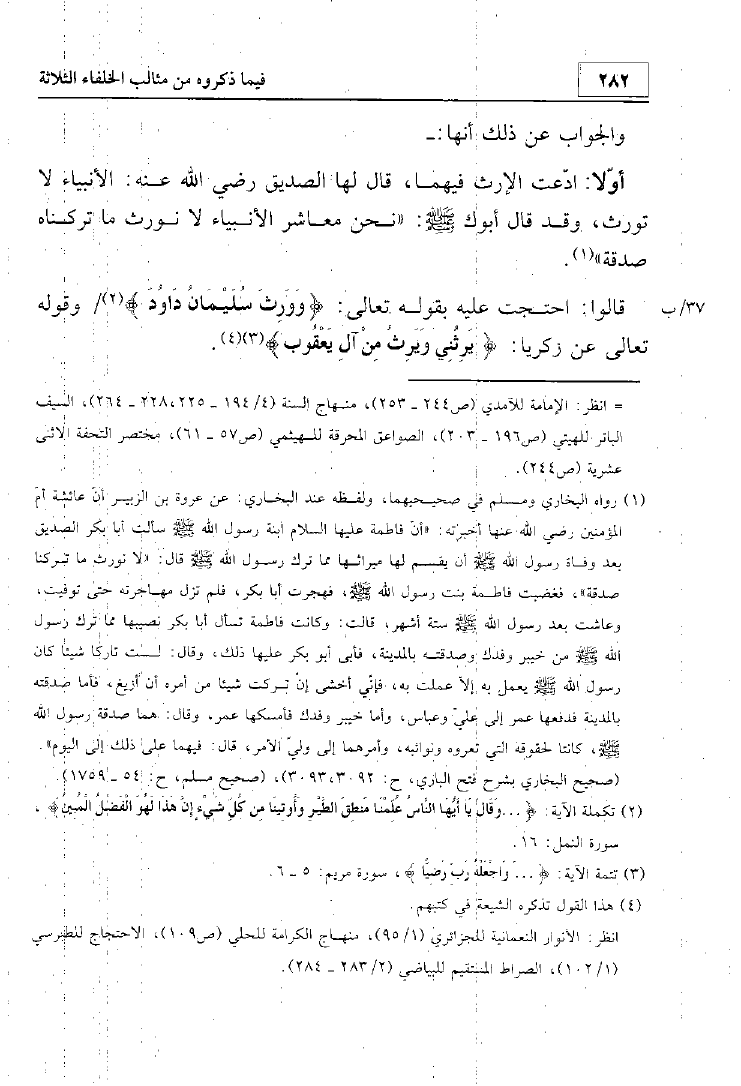 ٢٨٢ فيما ذكروه من مثالب الخلفاء الثلاثة
والجواب عن ذلك أنها:ـ
أوّلا: ادّعت الإرث فيهما، قال لها الصديق رضي الله عنه: الأنبياء لا
تورث، وقد قال أبوك ﷺ: «نحن معاشر الأنبياء لا نورث ما تركناه
صدقة»(١).
٣٧/ب قالوا: احتجت عليه بقوله تعالى: ﴿ وَوَرِثَ سُلَيْمَانُ دَاوُدَ ﴾(٢)/ وقوله
تعالى عن زكريا: ﴿ يَرِثُنِي وَيَرِثُ مِنْ آلِ يَعْقُوب ﴾(٣)(٤).
= انظر: الإمامة للآمدي (ص٢٤٤ ـ ٢٥٣)، منهاج السنة (٤/ ١٩٤ ـ ٢٢٥،٢٢٨ ـ ٢٦٤)، السيف
الباتر للهيتي (ص١٩٦ ـ ٢٠٣)، الصواعق المحرقة للهيثمي (ص٥٧ ـ ٦١)، مختصر التحفة الاثنى
عشرية (ص٢٤٤).
(١) رواه البخاري ومسلم في صحيحيهما، ولفظه عند البخاري: عن عروة بن الزبير أنّ عائشة أمّ
المؤمنين رضي الله عنها أخبرته: «أنّ فاطمة عليها السلام ابنة رسول الله ﷺ سألت أبا بكر الصديق
بعد وفاة رسول الله ﷺ أن يقسم لها ميراثها مما ترك رسول الله ﷺ قال: «لا نورث ما تركنا
صدقة»، فغضبت فاطمة بنت رسول الله ﷺ، فهجرت أبا بكر، فلم تزل مهاجرته حتى توفيت،
وعاشت بعد رسول الله ﷺ ستة أشهر، قالت: وكانت فاطمة تسأل أبا بكر نصيبها مما ترك رسول
الله ﷺ من خيبر وفدك وصدقته بالمدينة، فأبى أبو بكر عليها ذلك، وقال: لست تاركا شيئا كان
رسول الله ﷺ يعمل به إلا عملت به، فإنّي أخشى إنْ تركت شيئا من أمره أن أزيغ، فأما صدقته
بالمدينة فدفعها عمر إلى عليّ وعباس، وأما خيبر وفدك فأمسكها عمر، وقال: هما صدقة رسول الله
ﷺ، كانتا لحقوقه التي تعروه ونوائبه، وأمرهما إلى وليّ الأمر، قال: فيهما على ذلك إلى اليوم».
(صحيح البخاري بشرح فتح الباري، ح: ٣٠٩٣،٣٠٩٢)، (صحيح مسلم، ح: ٥٤ ـ ١٧٥٩).
(٢) تكملة الآية: ﴿ ...وَقَالَ يَا أَيُّهَا النَّاسُ عُلِّمْنَا مَنطِقَ الطَّيْرِ وَأُوتِينَا مِن كُلِّ شَيْءٍ إِنَّ هَذَا لَهُوَ الْفَضْلُ الْمُبِينُ﴾ ،
سورة النمل: ١٦.
(٣) تتمة الآية: ﴿ ... وَاجْعَلْهُ رَبِّ رَضِيًّا ﴾، سورة مريم: ٥ ـ ٦.
(٤) هذا القول تذكره الشيعة في كتبهم.
انظر: الأنوار النعمانية للجزائري (١/ ٩٥)، منهاج الكرامة للحلي (ص١٠٩)، الاحتجاج للطبرسي
(١/ ١٠٢)، الصراط المستقيم للبياضي (٢/ ٢٨٣ ـ ٢٨٤).